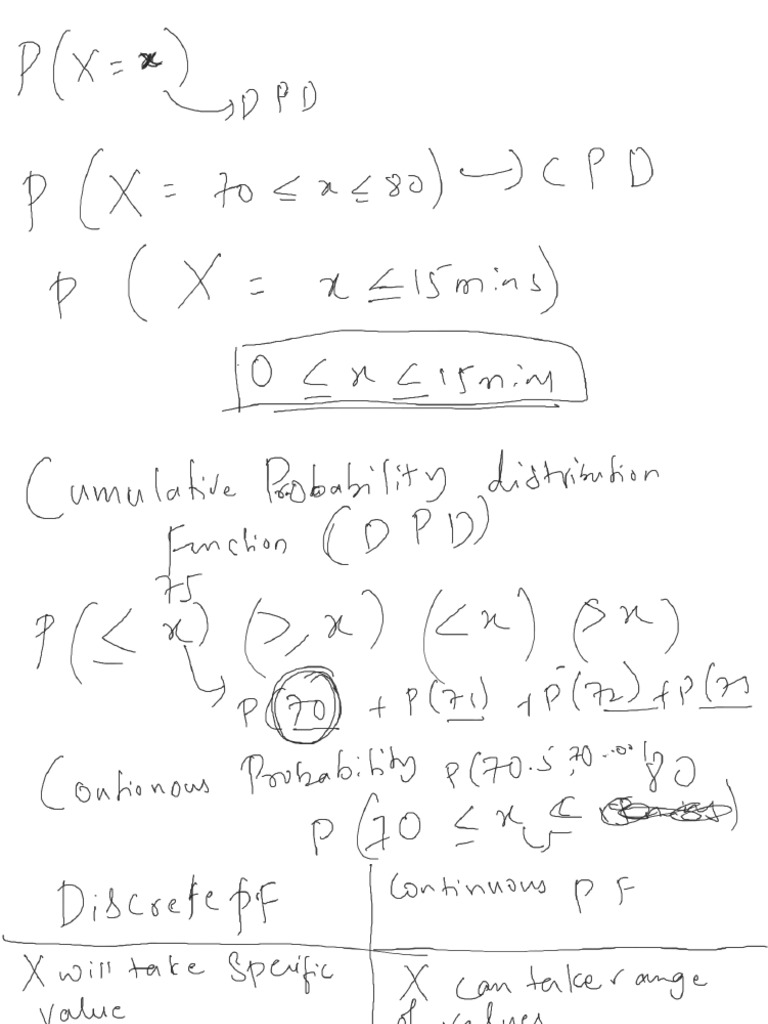 P(X = x)
→ DPD
P(X = 70 ≤ x ≤ 80) → CPD
P(X = x ≤ 15mins)
0 ≤ x ≤ 15min
Cumulative Probability distribution
Function (DPD)
75
P(≤ x) (>, x) (< x) (> x)
→ P(70) + P(71) + P(72) + P(73
Contionous Probability P(70.5, 70.001 80
P(70 ≤ x ≤ )
Discrete PF
Continuous PF
X will take Specific
value
X can take range
of values